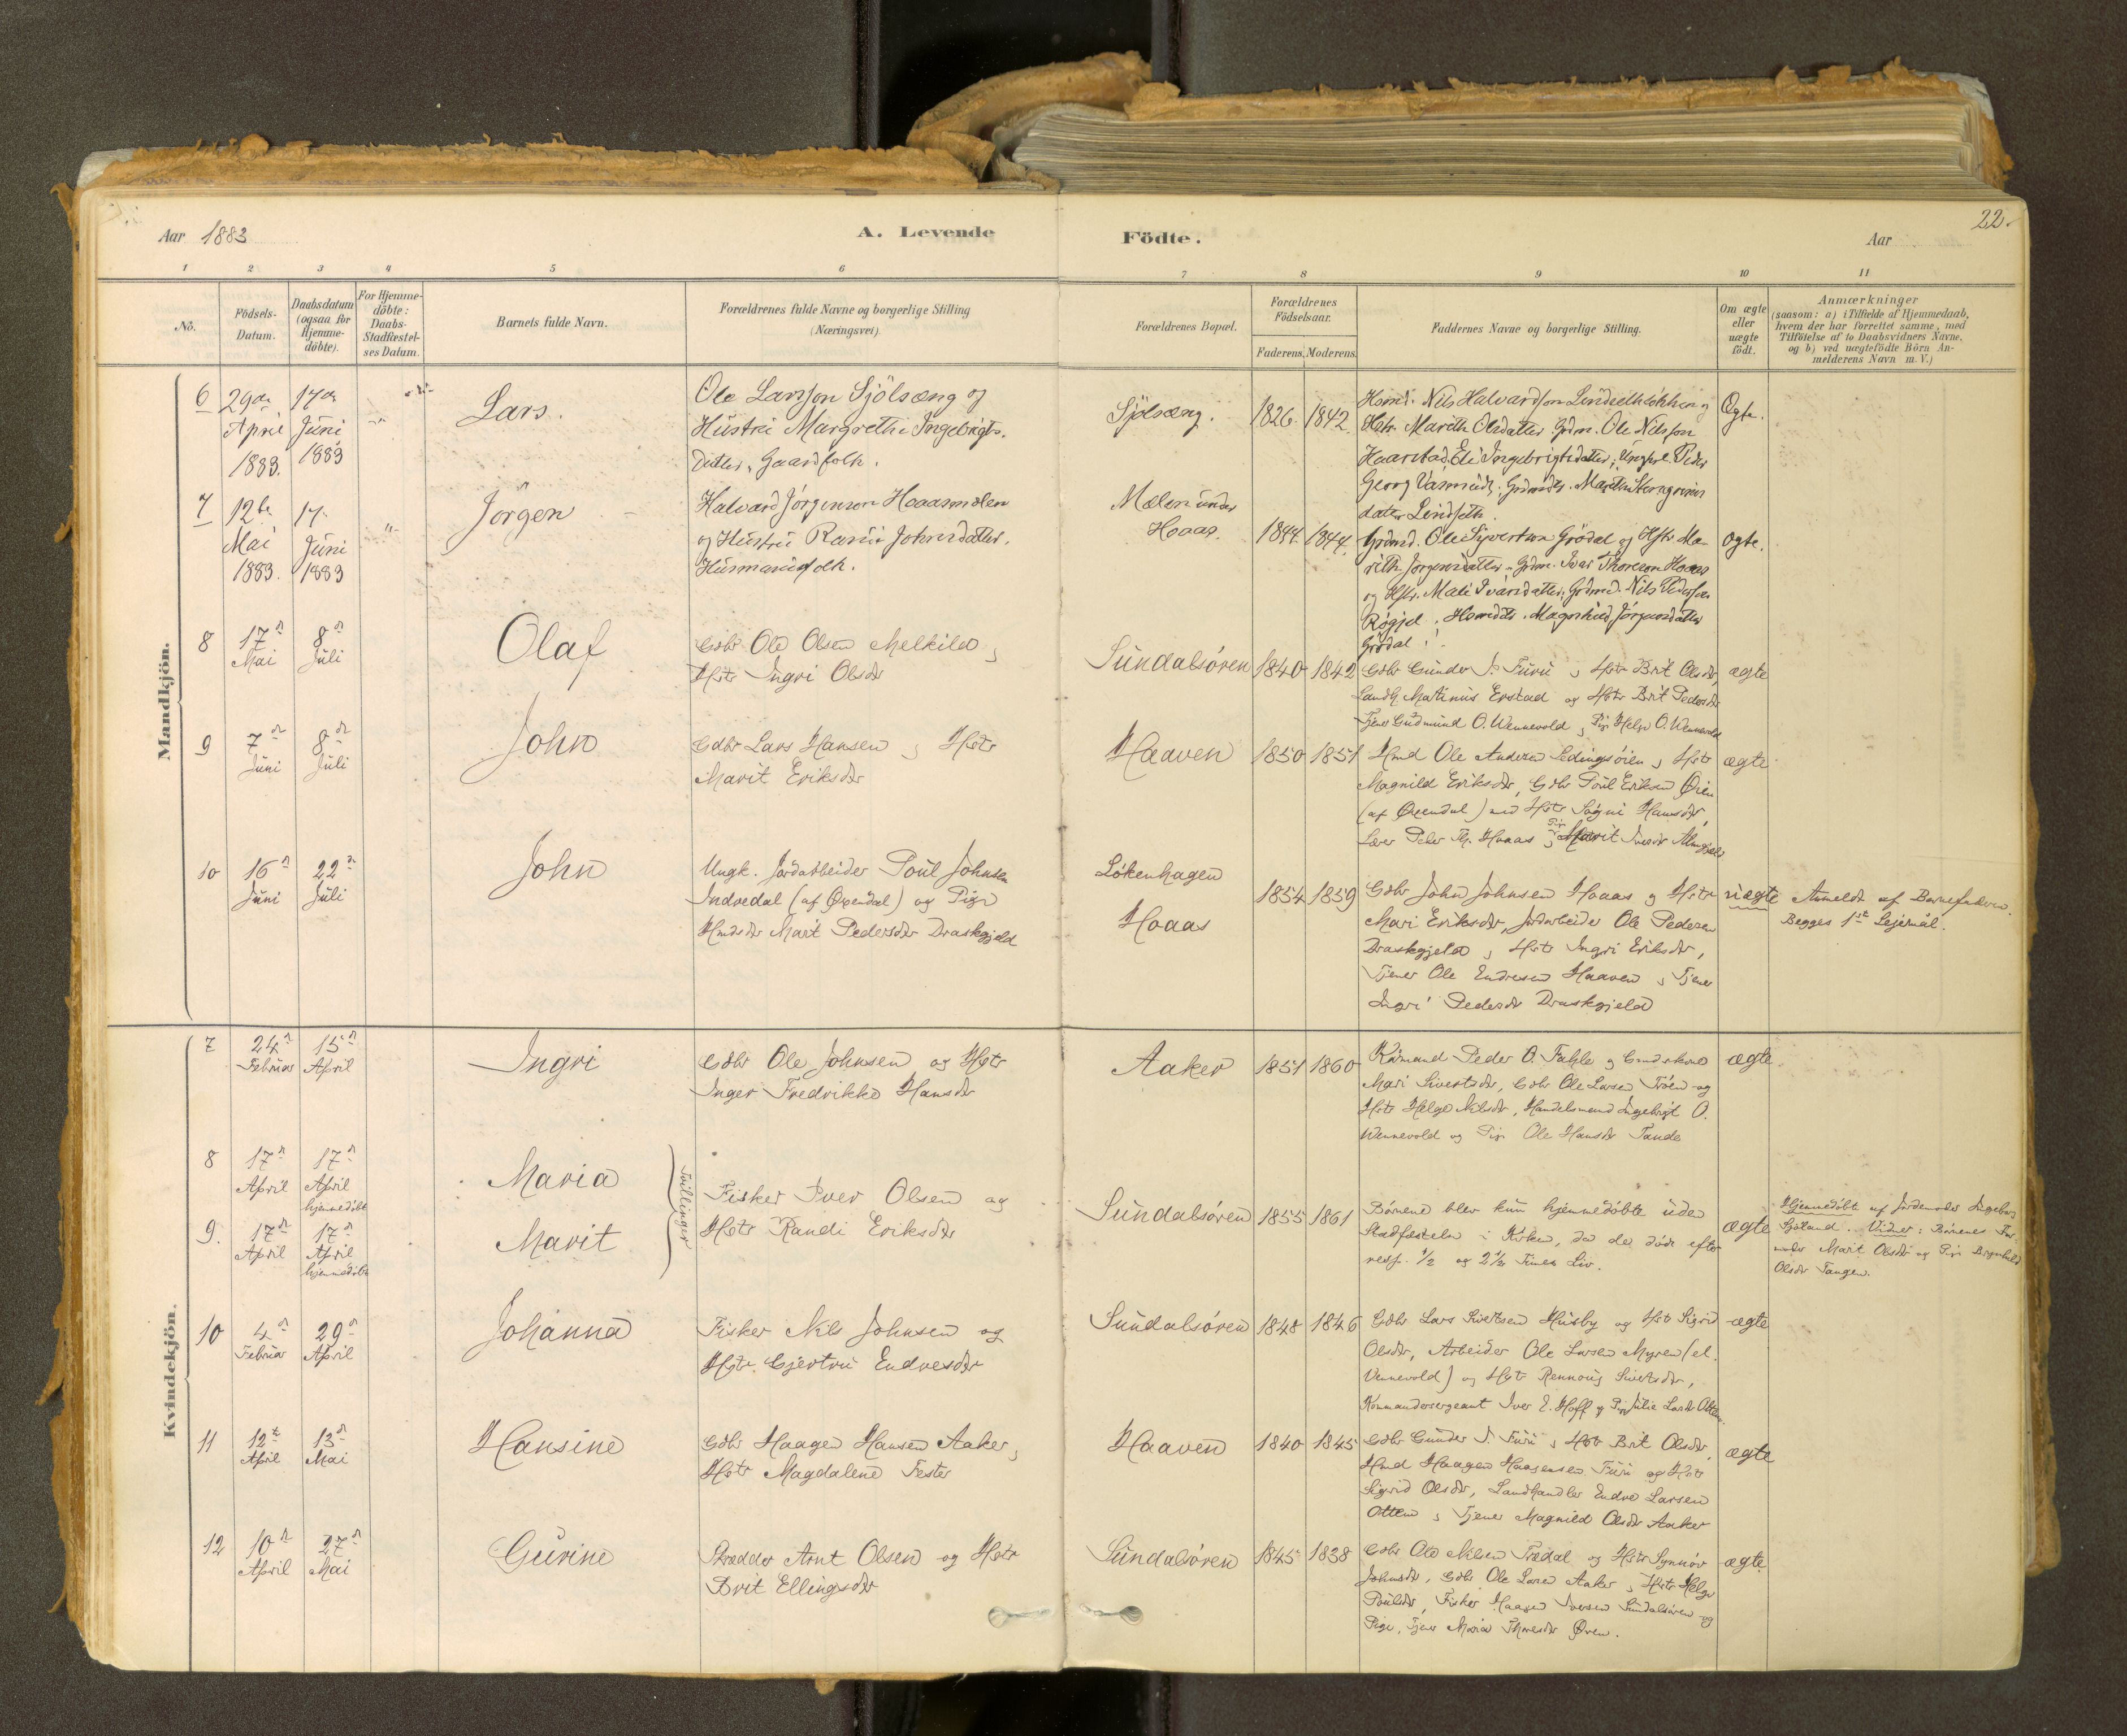 22.
Aar 1883
A. Levende
Födte.
Aar
1 2 3 4 5 6 7 8 9 10 11
No.
Födsels-
Datum.
Daabsdatum
(ogsaa for
Hjemme-
döbte).
For Hjemme-
döbte:
Daabs-
Stadfæstel-
ses Datum.
Barnets fulde Navn.
Forældrenes fulde Navne og borgerlige Stilling
(Næringsvei).
Forældrenes Bopæl.
Forældrenes
Födselsaar.
Faderens. Moderens.
Faddernes Navne og borgerlige Stilling.
Om ægte
eller
uægte
födt.
Anmærkninger
(saasom: a) i Tilfælde af Hjemmedaab,
hvem der har forrettet samme, med
Tilföielse af to Daabsvidners Navne,
og b) ved uægtefödte Börn An-
melderens Navn m. V.)
Mandkjön.
6
29de
April
1883.
17de
Juni
1883
Lars.
Ole Larsson Sjölsæng og
Hustru Margrethe Ingebrigts-
datter, Gaardfolk.
Sjölsæng.
1826. 1842.
Hsmd. Nils Halvardson
Hstr. Marith Olsdatter. Grdm. Ole Nilsson
Haarstad. Eli Ingebrigtsdatter; Ungkrl. Peder
Georg
datter Lindseth.
Ægte.
7
12te
Mai
1883.
17.
Juni
1883
Jörgen
Halvard Jörgenson Haasmælen
og Hustru Rannei Johnsdatter.
Husmansfolk.
Mælen under
Haas.
1844. 1844.
Grdmd. Ole Sivertson Grödal og Hstr. Ma-
rith Jörgensdatter. Grdm. Ivar Thoreson Haas
og Hstr. Mali Ivarsdatter; Grdmd. Nils Pederson
. Hsmdtr. Magnhild Jörgensdatter
Grödal.
Ægte.
8
17d
Mai
8d
Juli
Olaf
Gdbr Ole Olsen Melkild
Hstr Ingri Olsdr
Sundalsören
1840 1842
Gdbr Gunder J. Furu og Hstr Brit Olsdr,
Landh. Matinus Erstad og Hstr Brit Pedersdr
Tjener Gudmund O. Wennevold, Pige Helge O. Wennevold
ægte
9
7d
Juni
8d
Juli
John
Gdbr Lars Hansen og Hstr
Marit Eriksdr
Haaven
1850 1851
Hmd Ole Andersen Ledingsöien og Hstr
Magnild Eriksdr, Gdbr Poul Eriksen Öien
(af Öxendal) med Hstr Hansdr,
Lærer Peder Haas, Pige Marit
ægte
10
16d
Juni
22d
Juli
John
Ungk. Jordarbeider Poul Johnsen
Indredal (af Öxendal) og Pige
Hmdsdr Marit Pedersdr Draskgjeld
Lökenhagen
Haas
1854 1859
Gdbr John Johnsen Haas og Hstr
Mari Eriksdr, Jordarbeider Ole Pedersen
Draskgjeld og Hstr Ingri Eriksdr,
Tjener Ole Endresen Haaven og Tjener
Ingri Pedersdr Draskgjeld
uægte
Anmeldt af Barnefaderen.
Begges 1ste Lejermål.
Kvindekjön.
7
24d
Februar
15d
April
Ingri
Gdbr Ole Johnsen og Hstr
Inger Fredrikke Hansdr
Aaker
1851 1860
Kårmand Peder O. Fahle og Grmdskone
Mari Sivertsdr, Gdbr Ole Larsen Tröen og
Hstr Helge Nilsdr, Handelsmand Ingebrigt O.
Wennevold og Pige Ole Hansdr Tande
ægte
8
17d
April
17d
April
hjemmedöbt
Maria
Tvillinger
Fisker Iver Olsen og
Hstr Randi Eriksdr
9.
17d
April
17d
April
hjemmedöbt
Marit
Sundalsören
1855 1861
Børnene blev kun hjemmedöbte uden
Stadfæstelse i Kirken, da de döde efter
resp. 1/2 og 2 1/2 Times Liv.
ægte
Hjemmedöbt af Jordemoder Ingeborg
Sjöland. Vidner: Børnenes Far-
moder Marit Olsdr og Pige Brynhild
Olsdr Tangen.
10
4d
Februar
29d
April
Johanna
Fisker Nils Johnsen og
Hstr Gjertru Endresdr
Sundalsören
1848 1846
Gdbr Lars Sivertsen Husby og Hstr Sigrid
Olsdr, Arbeider Ole Larsen Myren (el.
Vennevold) og Hstr Rennoug Sivertsdr,
Kommandersergeant Iver E. Hoff og Pige Julie Larsdr Ottem.
ægte
11
12te
April
13d
Mai
Hansine
Gdbr Haagen Hansen Aaker,
Hstr Magdalene Fester
Haaven
1840 1845
Gdbr Gunder J. Furu og Hstr Brit Olsdr,
Hmd Haagen Haagensen Furu og Hstr
Sigrid Olsdr, Landhandler Endre Larsen
Ottem og Tjener Magnild Olsdr Aaker
ægte
12
10d
April
27d
Mai
Gurine
Skrædder Arnt Olsen og Hstr
Brit Ellingsdr
Sundalsören
1845 1838
Gdbr Ole Nilsen Trædal og Hstr Synnöv
Johnsdr, Gdbr Ole Larsen Aaker og Hstr Helge
Poulsdr, Fisker Haagen Iversen Sundalsören og
Pige, Tjener Maria Thoresdr Ören.
ægte